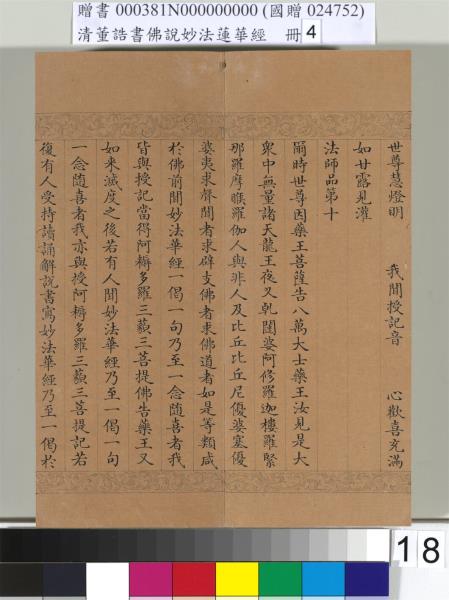 贈書 000381N000000000 (國贈 024752)
清董誥書佛說妙法蓮華經 冊 4
世尊慧燈明 我聞授記音 心歡喜充滿
如甘露見灌
法師品第十
爾時世尊因藥王菩薩告八萬大士藥王汝見是大
眾中無量諸天龍王夜叉乹闥婆阿修羅迦樓羅緊
那羅摩睺羅伽人與非人及比丘比丘尼優婆塞優
婆夷求聲聞者求辟支佛者求佛道者如是等類咸
於佛前聞妙法華經一偈一句乃至一念隨喜者我
皆與授記當得阿耨多羅三藐三菩提佛告藥王又
如来滅度之後若有人聞妙法華經乃至一偈一句
一念隨喜者我亦與授阿耨多羅三藐三菩提記若
復有人受持讀誦解說書寫妙法華經乃至一偈於
18